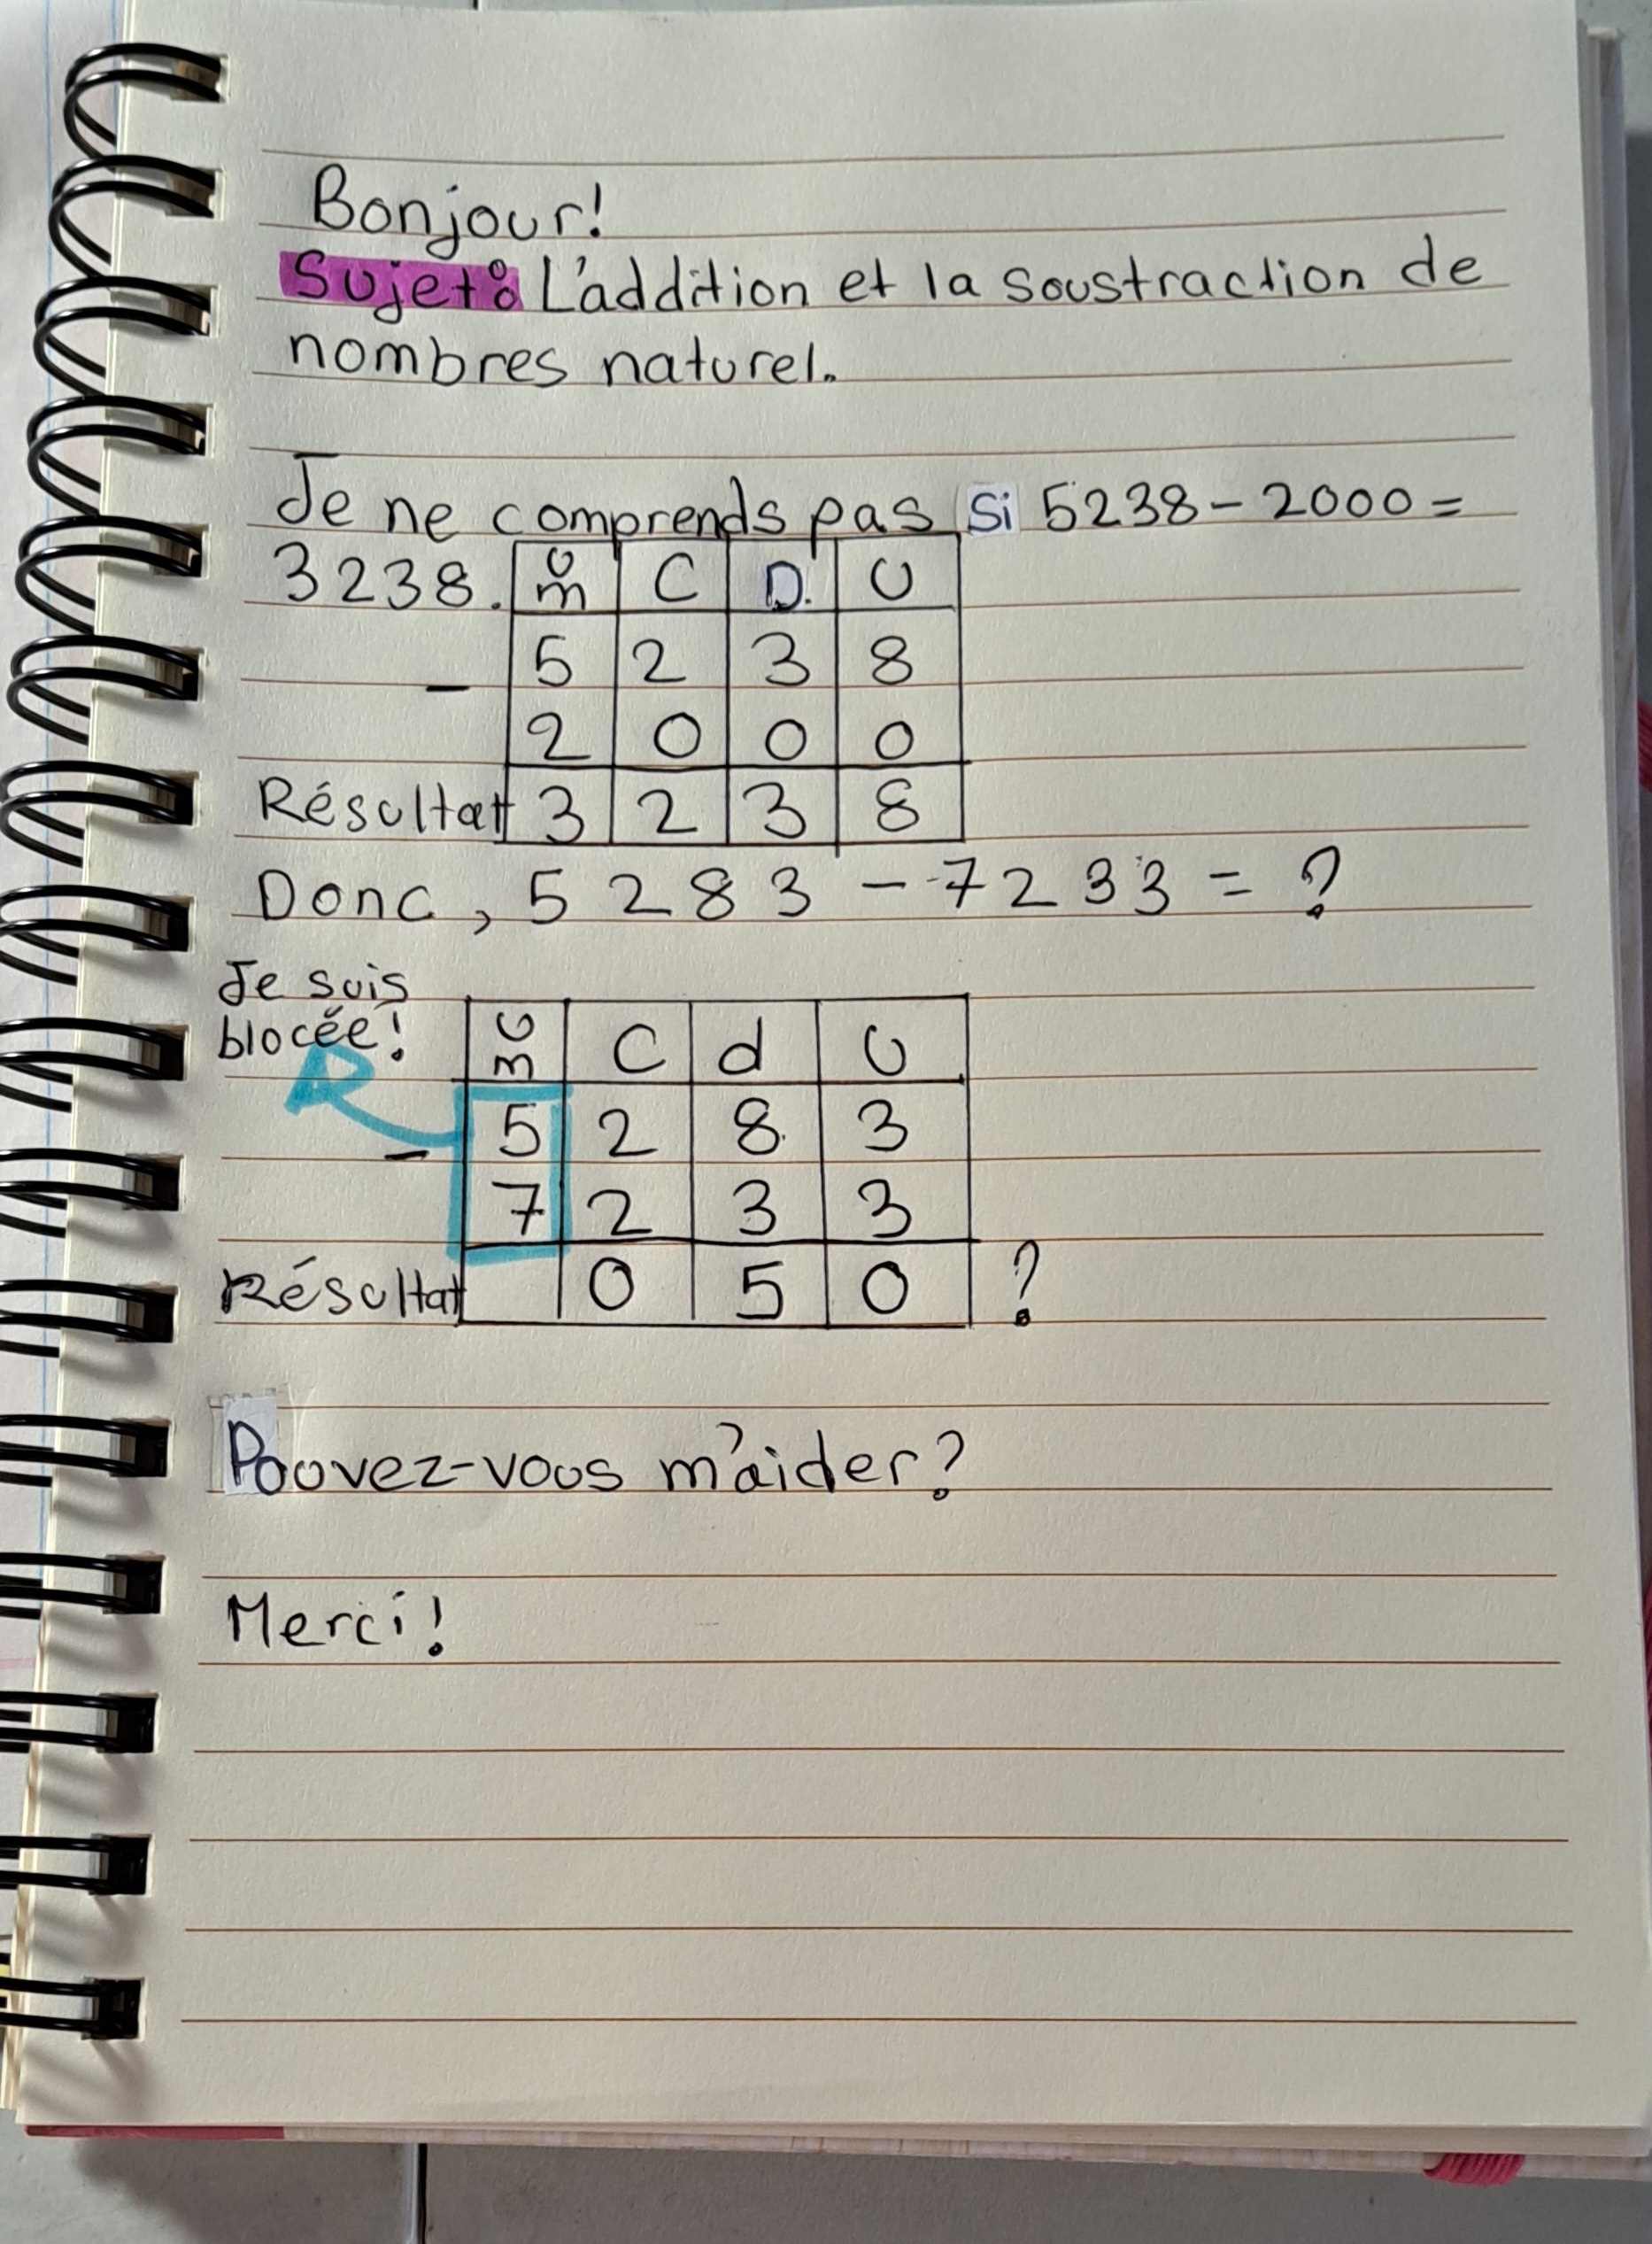 Bonjour!
Sujet: L'addition et la soustraction de
nombres naturel.
Je ne comprends pas si 5238 - 2000 =
3238.
um C D. U
5 2 3 8
-
2 0 0 0
Résultat 3 2 3 8
Donc, 5283 - 7233 = ?
Je suis
blocée!
um C d U
5 2 8 3
-
7 2 3 3
Résultat 0 5 0 ?
Pouvez-vous m'aider?
Merci!